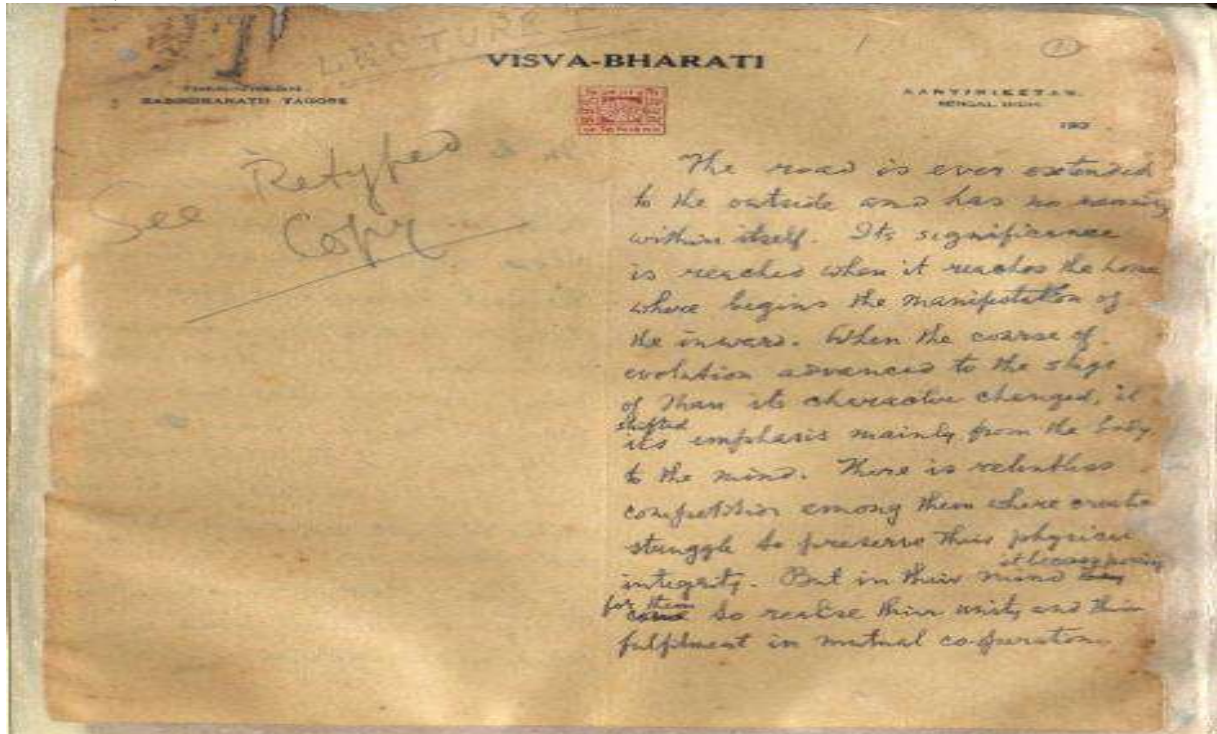 LECTURE I
VISVA-BHARATI
RABINDRANATH TAGORE
SANTINIKETAN,
BENGAL, INDIA
193
See Retyped
Copy
The road is ever extended
to the outside and has no meaning
within itself. Its significance
is reached when it reaches the home
where begins the manifestation of
the inward. When the course of
evolution advanced to the stage
of Man its character changed, it
shifted
its emphasis mainly from the body
to the mind. There is relentless
competition among them where
struggle to preserve their physical
integrity. But in their mind it became
for them to realise their unity and their
fulfilment in mutual co-operation.